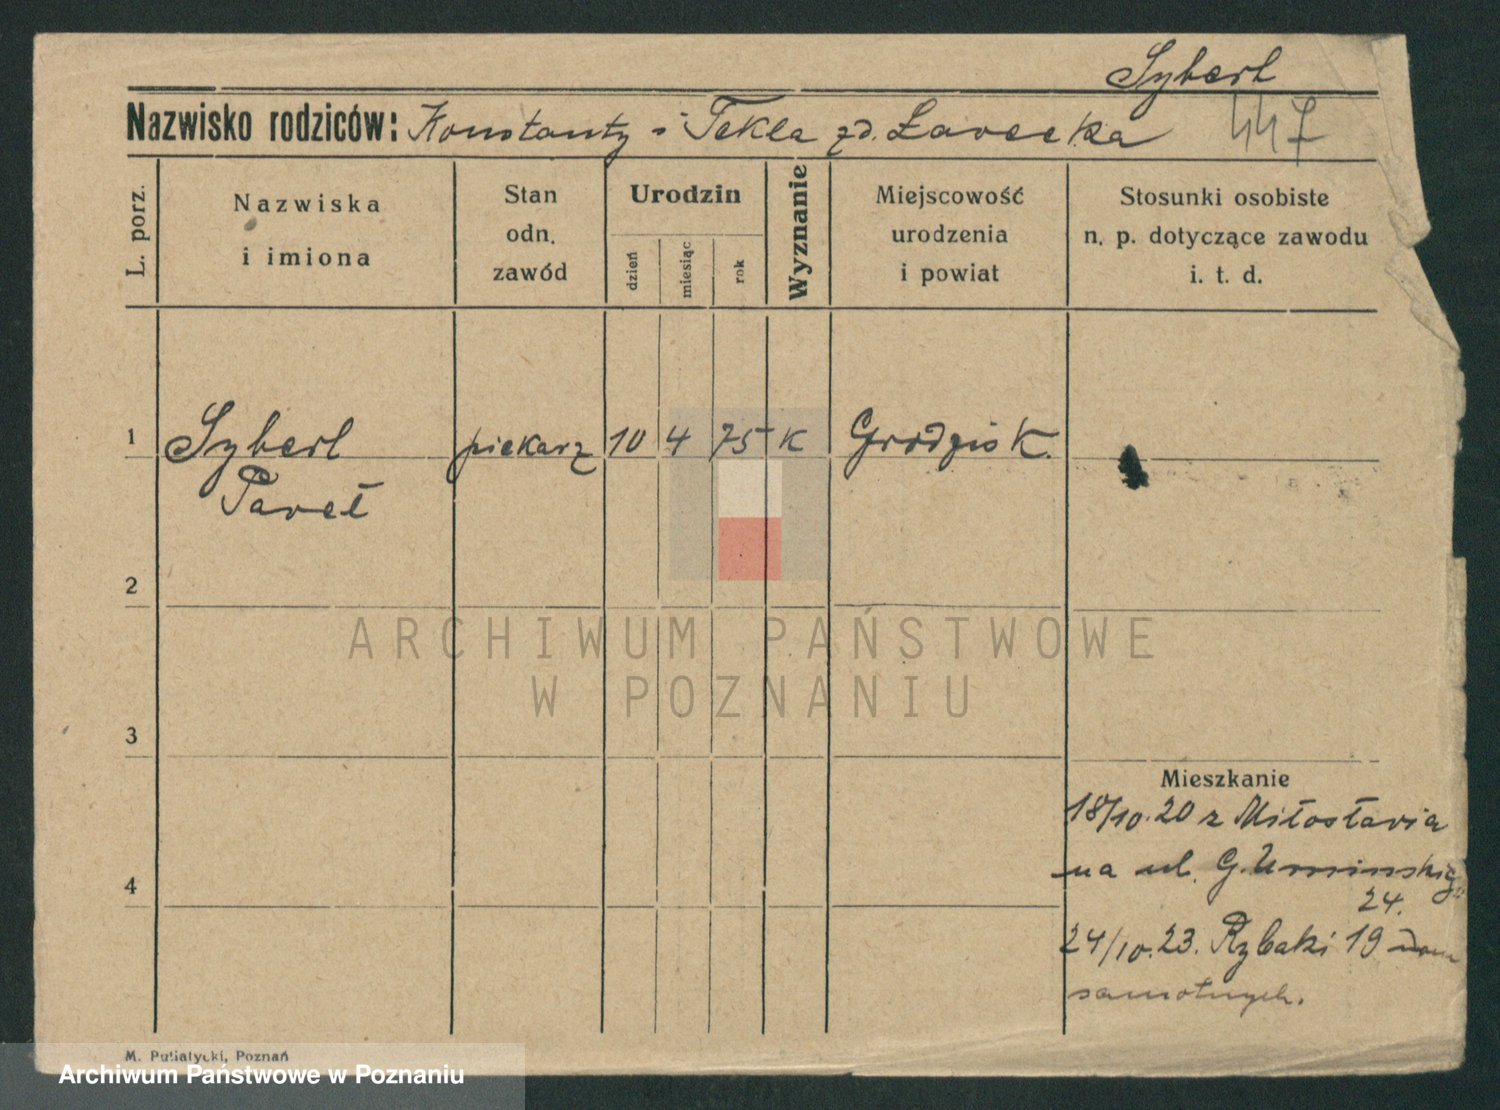 Syberl
Nazwisko rodziców: Konstanty i Tekla zd. Ławecka 447
L. porz.
Nazwiska
i imiona
Stan
odn.
zawód
Urodzin
dzień
miesiąc
rok
Wyznanie
Miejscowość
urodzenia
i powiat
Stosunki osobiste
n. p. dotyczące zawodu
i. t. d.
1 Syberl piekarz 10 4 75 K Grodzisk.
Paweł
2
ARCHIWUM PAŃSTWOWE
W POZNANIU
3
Mieszkanie
18/10.20 z Miłosławia
na ul. G. Umińskieg
24.
4
24/10.23. Rybaki 19 dom
samotnych.
M. Putiatycki, Poznań
Archiwum Państwowe w Poznaniu